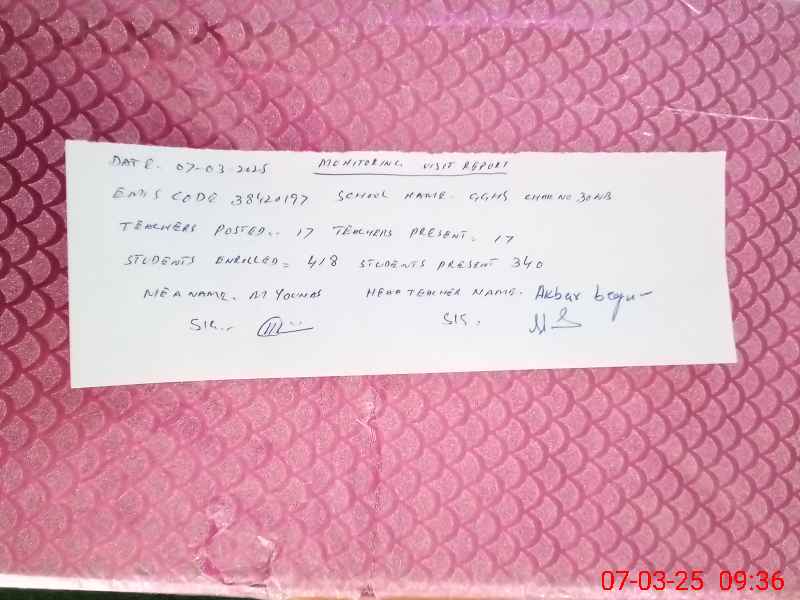 DATE. 07-03-2025 MONITORING VISIT REPORT
EMIS CODE 38420197 SCHOOL NAME. GGHS CHAK NO. 30NB
TEACHERS POSTED.. 17 TEACHERS PRESENT. 17
STUDENTS ENROLLED = 418 STUDENTS PRESENT 340
MEA NAME. M YOUNAS HEAD TEACHER NAME. Akbar begum
SIG.. SIG.
07-03-25 09:36